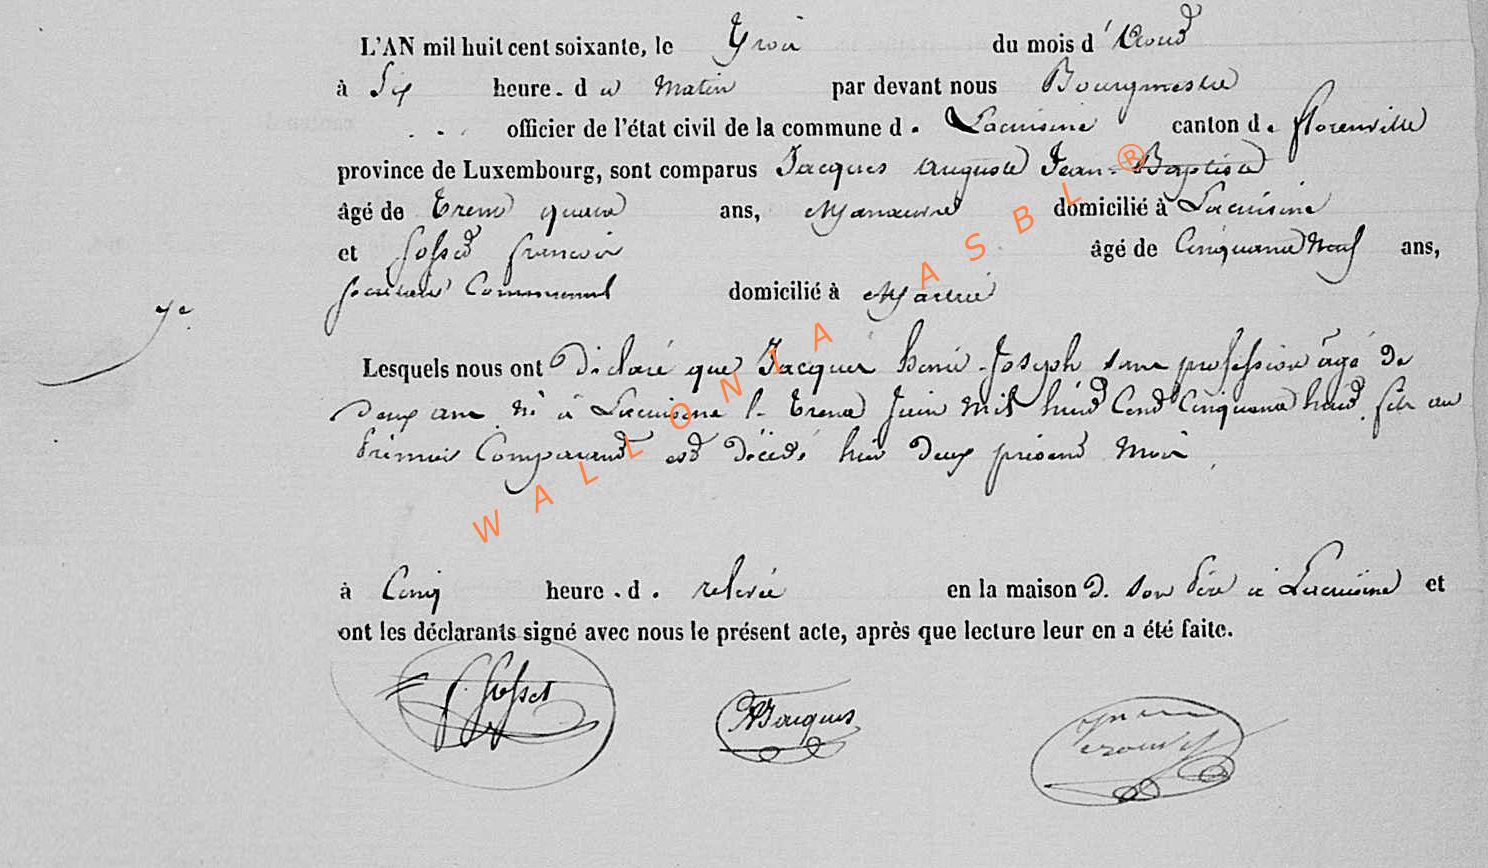 L'AN mil huit cent soixante, le Trois du mois d'Aout
à Six heure. du Matin par devant nous Bourgmestre
officier de l'état civil de la commune d. Lacuisine canton de florenville
province de Luxembourg, sont comparus Jacques Auguste Jean-Baptiste
âgé de Trente quatre ans, Manœuvre domicilié à Lacuisine
et Gosset françois âgé de Cinquante Neuf ans,
Secrétaire Communal domicilié à Martué
7e.
Lesquels nous ont Déclaré que Jacques henri Joseph sans profession âgé de
Deux ans né à Lacuisine le Trente Juin Mil huit Cent Cinquante huit fils au
Premier Comparant est Décédé hier Deux présent Mois
à Cinq heure. d. relevée en la maison D. son Père à Lacuisine et
ont les déclarants signé avec nous le présent acte, après que lecture leur en a été faite.
f. Gosset AJacques
WALLONIA ASBL ®